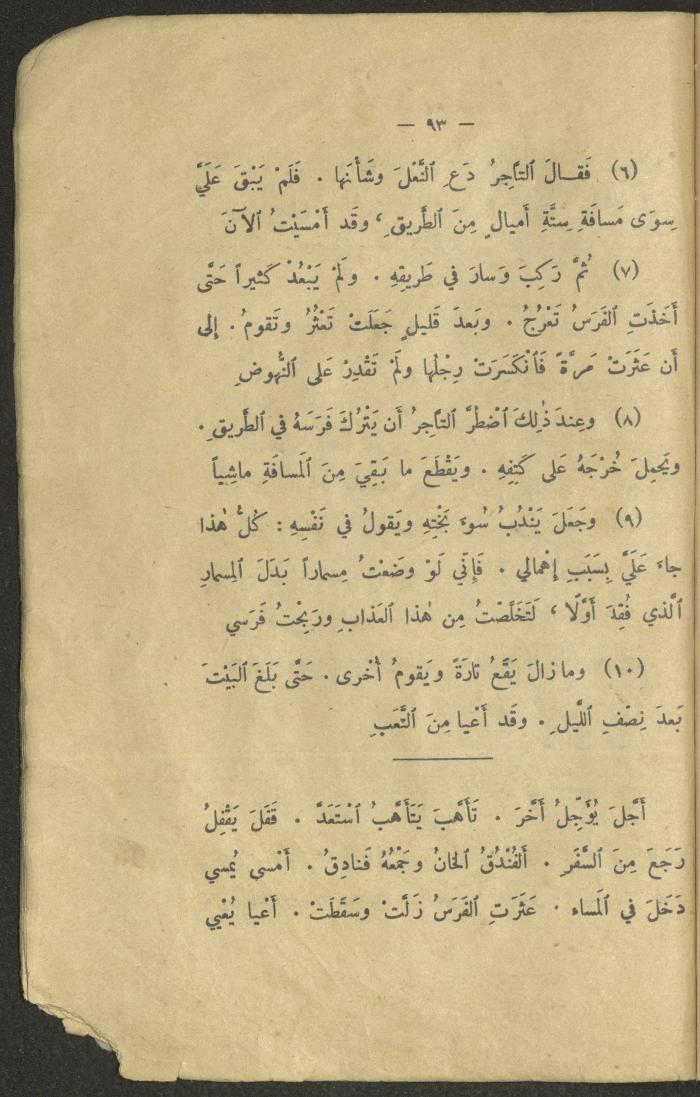 — ٩٣ —
(٦) فَقـالَ ٱلتَّاجِرُ دَعِ ٱلنَّعْلَ وشَأْنَها . فَلَمْ يَبْقَ عَلَيَّ
سِوَى مَسافَةِ سِتَّةِ أَميالٍ مِنَ ٱلطَّريقِ ، وقَد أَمْسَيْتُ ٱلآنَ
(٧) ثُمَّ رَكِبَ وَسارَ في طَريقِهِ . ولَمْ يَبْعُدْ كَثيراً حَتَّى
أَخَذَتِ ٱلفَرَسُ تَعْرُجُ . وبَعدَ قَليلٍ جَعَلَتْ تَعْثُرُ وتَقومُ . إِلى
أَن عَثَرَتْ مَرَّةً فَٱنْكَسَرَتْ رِجْلُها ولَمْ تَقْدِرْ عَلى ٱلنُّهوضِ
(٨) وعِندَ ذٰلِكَ ٱضْطُرَّ ٱلتَّاجِرُ أَن يَتْرُكَ فَرَسَهُ في ٱلطَّريقِ .
ويَحمِلَ خُرْجَهُ عَلى كَتِفِهِ . ويَقْطَعَ ما بَقِيَ مِنَ ٱلمَسافَةِ ماشِياً
(٩) وجَعَلَ يَنْدُبُ سُوءَ بَخْتِهِ ويَقولُ في نَفْسِهِ : كُلُّ هٰذا
جاءَ عَلَيَّ بِسَبَبِ إِهْمالي . فَإِنّي لَوْ وضَعْتُ مِسماراً بَدَلَ ٱلمِسمارِ
ٱلَّذي فُقِدَ أَوَّلًا ، لَتَخَلَّصْتُ مِن هٰذا ٱلعَذابِ ورَبِحْتُ فَرَسي
(١٠) وما زالَ يَقَعُ تارَةً ويَقومُ أُخْرى . حَتَّى بَلَغَ ٱلبَيْتَ
بَعدَ نِصْفِ ٱللَّيلِ . وقَد أَعْيا مِنَ ٱلتَّعَبِ
أَجَّلَ يُؤَجِّلُ أَخَّرَ . تَأَهَّبَ يَتَأَهَّبُ ٱسْتَعَدَّ . قَفَلَ يَقْفِلُ
رَجَعَ مِنَ ٱلسَّفَرِ . ٱلفُنْدُقُ ٱلخانُ وجَمْعُهُ فَنادِقُ . أَمْسى يُمسي
دَخَلَ في ٱلمَساءِ . عَثَرَتِ ٱلفَرَسُ زَلَّتْ وسَقَطَتْ . أَعْيا يُعْيي